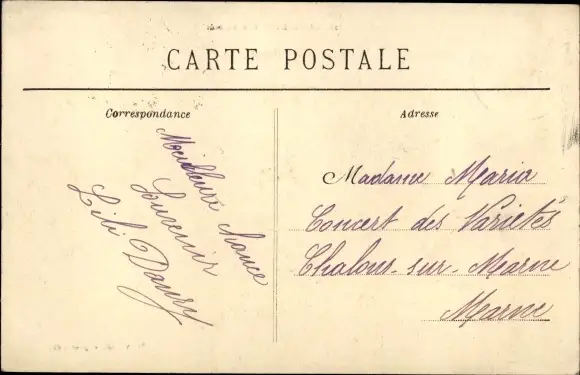 CARTE POSTALE
Correspondance
Meilleure chance
Souvenir
Lili Daury
Adresse
Madame Maria
Concert des Varietés
Chalons-sur-Mearne
Mearne